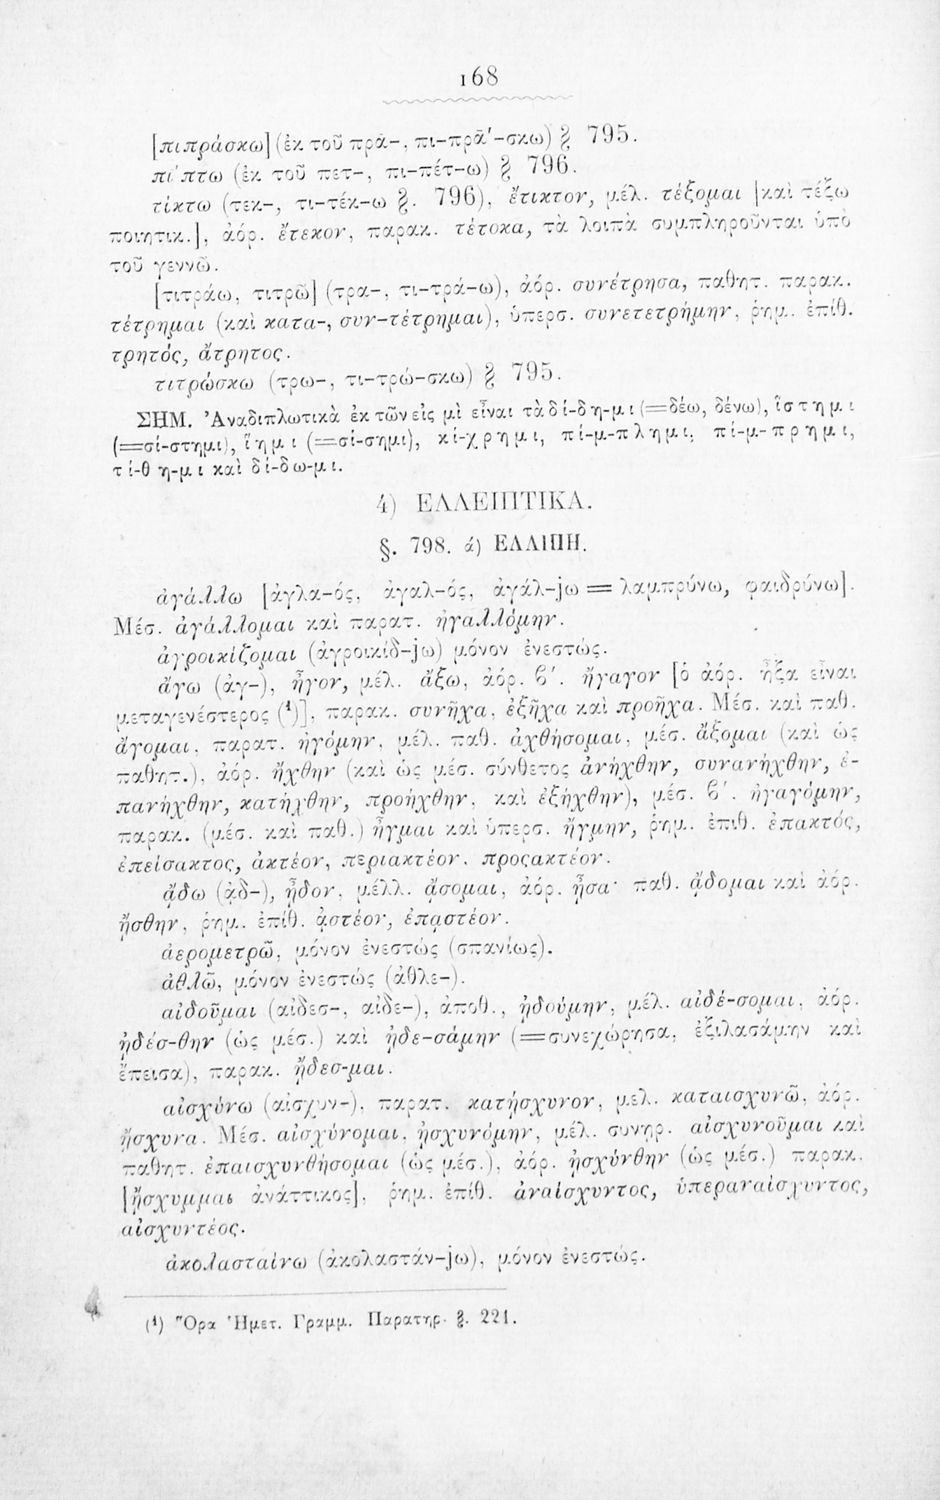 168
[πιπράσκω] (ἐκ τοῦ πρᾱ-, πι-πρᾱ΄-σκω) § 795.
πί πτω (ἐκ τοῦ πετ-, πι-πέτ-ω) § 796.
τίκτω (τεκ-, τι-τέκ-ω §. 796), ἔτικτον, μέλ. τέξομαι [καὶ τέξω
ποιητικ.], ἀόρ. ἔτεκον, παρακ. τέτοκα, τὰ λοιπὰ συμπληροῦνται ὑπὸ
τοῦ γεννῶ.
[τιτράω, τιτρῶ] (τρα-, τι-τρά-ω), ἀόρ. συνέτρησα, παθητ. παρακ.
τέτρημαι (καὶ κατα-, συν-τέτρημαι), ὑπερσ. συνετετρήμην, ῥημ. ἐπίθ.
τρητός, ἄτρητος.
τιτρώσκω (τρω-, τι-τρώ-σκω) § 795.
ΣΗΜ. Ἀναδιπλωτικὰ ἐκ τῶν εἰς μὶ εἶναι τὰ δί-δη-μι (=δέω, δένω), ἵστημι
(=σί-στημι), ἵημι (=σί-σημι), κί-χρημι, πί-μ-πλημι, πί-μ-πρημι,
τί-θη-μι καὶ δί-δω-μι.
4) ΕΛΛΕΙΠΤΙΚΑ.
§. 798. ά) ΕΛΛΙΠΗ.
ἀγάλλω [ἀγλα-ός, ἀγαλ-ός, ἀγάλ-jω = λαμπρύνω, φαιδρύνω].
Μέσ. ἀγάλλομαι καὶ παρατ. ἠγαλλόμην.
ἀγροικίζομαι (ἀγροικίδ-jω) μόνον ἐνεστώς.
ἄγω (ἀγ-), ἦγον, μέλ. ἄξω, ἀόρ. ϐ΄. ἤγαγον [ὁ ἀόρ. ἦξα εἶναι
μεταγενέστερος (¹)], παρακ. συνῆχα, ἐξῆχα καὶ προῆχα. Μέσ. καὶ παθ.
ἄγομαι, παρατ. ἠγόμην, μέλ. παθ. ἀχθήσομαι, μέσ. ἄξομαι (καὶ ὡς
παθητ.), ἀόρ. ἤχθην (καὶ ὡς μέσ. σύνθετος ἀνήχθην, συνανήχθην, ἐ-
πανήχθην, κατήχθην, προήχθην, καὶ ἐξήχθην), μέσ. ϐ΄. ἠγαγόμην,
παρακ. (μέσ. καὶ παθ.) ἦγμαι καὶ ὑπερσ. ἤγμην, ῥημ. ἐπιθ. ἐπακτός,
ἐπείσακτος, ἀκτέον, περιακτέον, προςακτέον.
ᾄδω (ᾀδ-), ᾖδον, μέλλ. ᾄσομαι, ἀόρ. ᾖσα· παθ. ᾄδομαι καὶ ἀόρ.
ᾔσθην, ῥημ. ἐπίθ. ᾀστέον, ἐπᾳστέον.
ἀερομετρῶ, μόνον ἐνεστώς (σπανίως).
ἀθλῶ, μόνον ἐνεστώς (ἀθλε-).
αἰδοῦμαι (αἰδεσ-, αἰδε-), ἀποθ., ᾐδούμην, μέλ. αἰδέ-σομαι, ἀόρ.
ᾐδέσ-θην (ὡς μέσ.) καὶ ᾐδε-σάμην (=συνεχώρησα, ἐξιλασάμην καὶ
ἔπεισα), παρακ. ᾔδεσ-μαι.
αἰσχύνω (αἰσχυν-), παρατ. κατῄσχυνον, μέλ. καταισχυνῶ, ἀόρ.
ᾔσχυνα. Μέσ. αἰσχύνομαι, ᾐσχυνόμην, μέλ. συνηρ. αἰσχυνοῦμαι καὶ
παθητ. ἐπαισχυνθήσομαι (ὡς μέσ.), ἀόρ. ᾐσχύνθην (ὡς μέσ.) παρακ.
[ᾔσχυμμαι ἀνάττικος], ῥημ. ἐπίθ. ἀναίσχυντος, ὑπεραναίσχυντος,
αἰσχυντέος.
ἀκολασταίνω (ἀκολαστάν-jω), μόνον ἐνεστώς.
(¹) Ὅρα Ἡμετ. Γραμμ. Παρατηρ. §. 221.